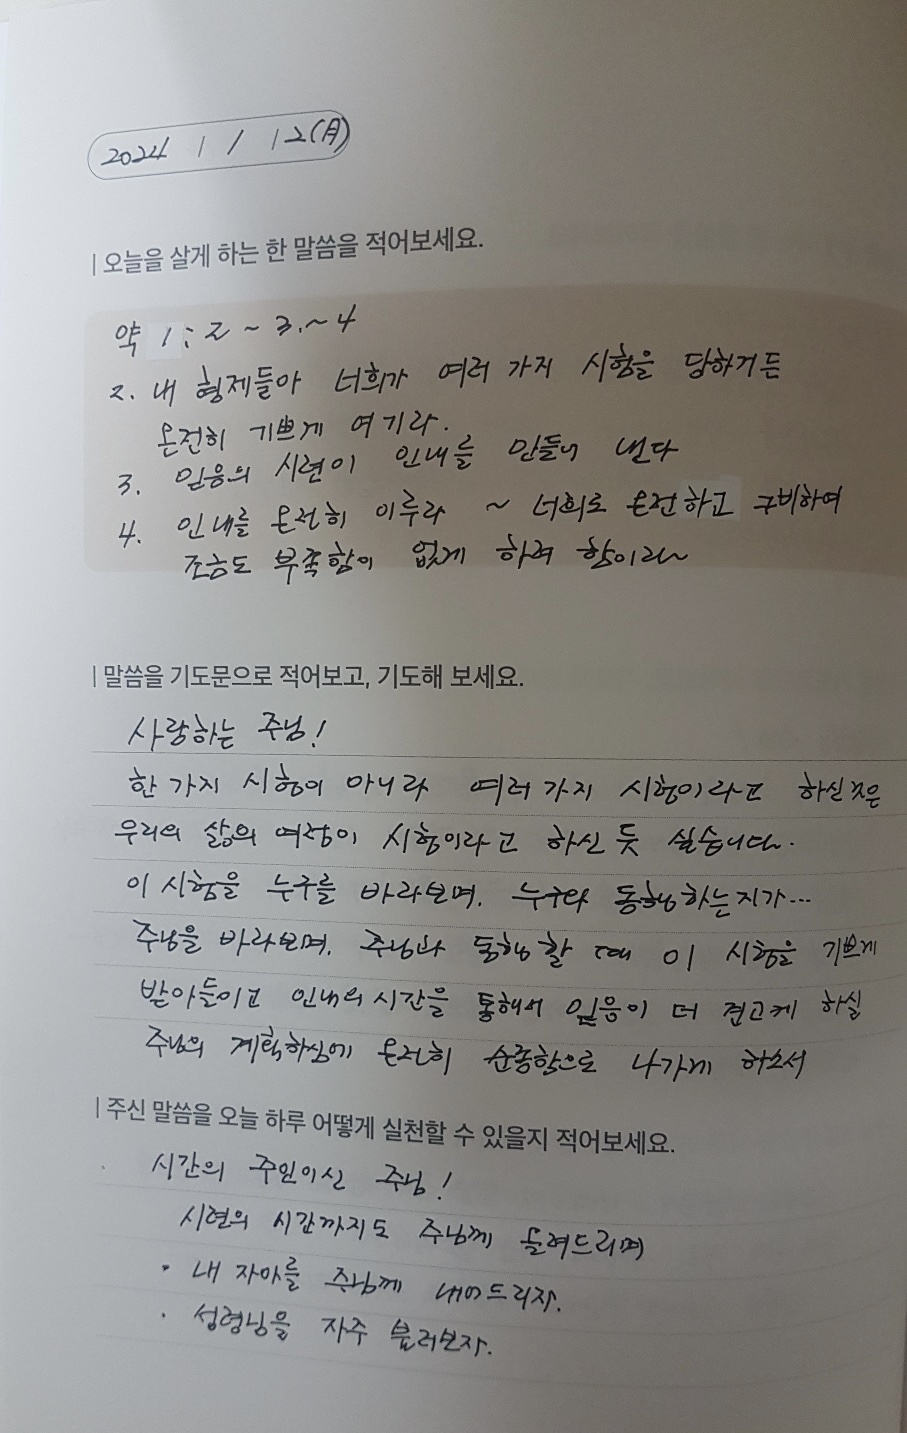 2024 1 / 12(月)
오늘을 살게 하는 한 말씀을 적어보세요.
약 1:2~3.~4
2. 내 형제들아 너희가 여러 가지 시험을 당하거든
온전히 기쁘게 여기라.
3. 믿음의 시련이 인내를 만들어 낸다
4. 인내를 온전히 이루라 ~ 너희로 온전하고 구비하여
조금도 부족함이 없게 하려 함이라~
말씀을 기도문으로 적어보고, 기도해 보세요.
사랑하는 주님!
한 가지 시험이 아니라 여러 가지 시험이라고 하신 것은
우리의 삶의 여정이 시험이라고 하신 듯 싶습니다.
이 시험을 누구를 바라보며, 누구와 동행하는지가...
주님을 바라보며, 주님과 동행할 때 이 시험을 기쁘게
받아들이고 인내의 시간을 통해서 믿음이 더 견고케 하실
주님의 계획하심에 온전히 순종함으로 나가게 하소서
주신 말씀을 오늘 하루 어떻게 실천할 수 있을지 적어보세요.
시간의 주인이신 주님!
시련의 시간까지도 주님께 올려드리며
· 내 자아를 주님께 내어드리자.
· 성령님을 자주 불러보자.